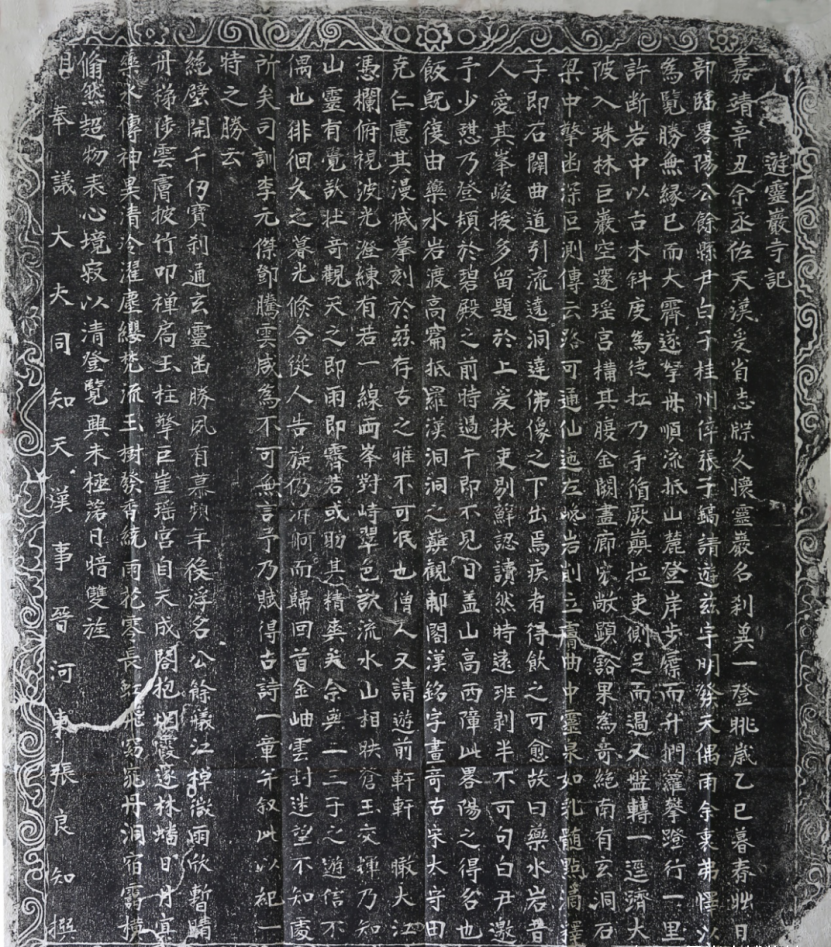 遊靈巖寺記
嘉靖辛丑余丞佐天漢爰省志牒久懷靈巖名刹冀一登眺歲乙巳暮春朏日
部臨畧陽公餘縣尹白子桂州倅張子鷂請遊兹宇明發天偶雨余衷弗懌以
為覽勝無緣已而大霽遂挐舟順流抵山麓登岸步屧而升捫蘿攀蹬行一里
許断岩中以古木斜度為徒杠乃手循厥巔拉吏側足而過又盤轉一逕濟大
陂入珠林巨巖空邃瑶宫構其腹金闕畫廊宏敞顥豁果為奇絶南有玄洞石
梁中擎幽深叵測傳云路可通仙迹左峻岩削立膚曲中靈泉如乳髓點滴澤
子即石開曲道引流遶洞達佛像之下出焉疾者得飲之可愈故曰藥水岩昔
人愛其峯峻拔多留題於上爰扶吏剔鮮認讀然時遠班剥半不可句白尹邀
予少憇乃登頓於碧殿之前時過午即不見日盖山高西障此畧陽之得名也
飯既復由藥水岩渡高竇抵羅漢洞洞之藝觀郙閣漢銘字畫奇古宋太守田
克仁慮其漫滅摹刻於兹存古之雅不可泯也僧人又請遊前軒軒瞰大江
憑欄俯視波光澄練有若一線两峯對峙翠色欲流水山相映蒼玉交輝乃知
山靈有覺故壮奇觀天之即雨即霽若或助其精爽矣余與二三子之遊信不
偶也徘徊久之暮光倏合從人告旋仍泝舸而歸回首金岫雲封迷望不知處
所矣司訓李元傑鄧騰雲咸為不可無言予乃賦得古詩一章并叙此以紀一
特之勝云
絶壁開千仞寳刹通玄靈幽勝夙有慕頻年役浮名公餘艤江棹微雨欣暫晴
丹梯陟雲磴披竹叩禪扃玉柱擎巨崖瑶宫自天成閣抱烟霞邃林蟠日月真
藥水傳神異清泠濯塵纓梵流玉樹發香繞雨花零長虹
窈窕丹洞宿霧横
翛然超物表心境寂以清登覽興未極落日暗雙旌
奉議大夫同知天漢事晉河東張良知撰